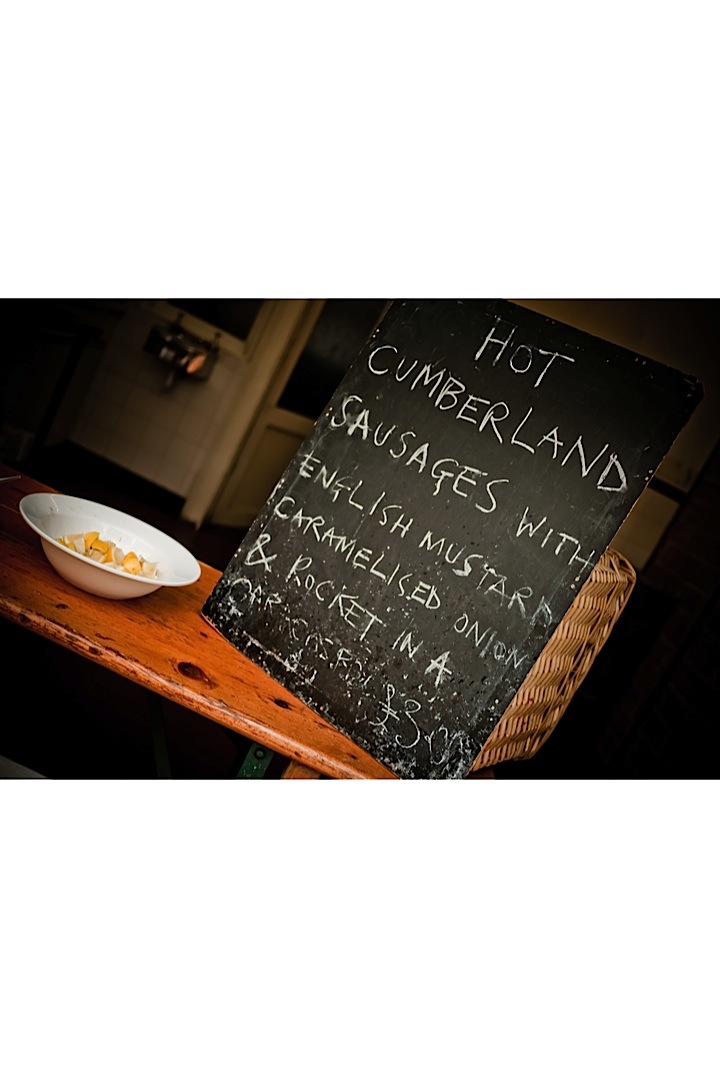 HOT
CUMBERLAND
SAUSAGES WITH
ENGLISH MUSTARD
CARAMELISED ONION
& ROCKET IN A
£3.00